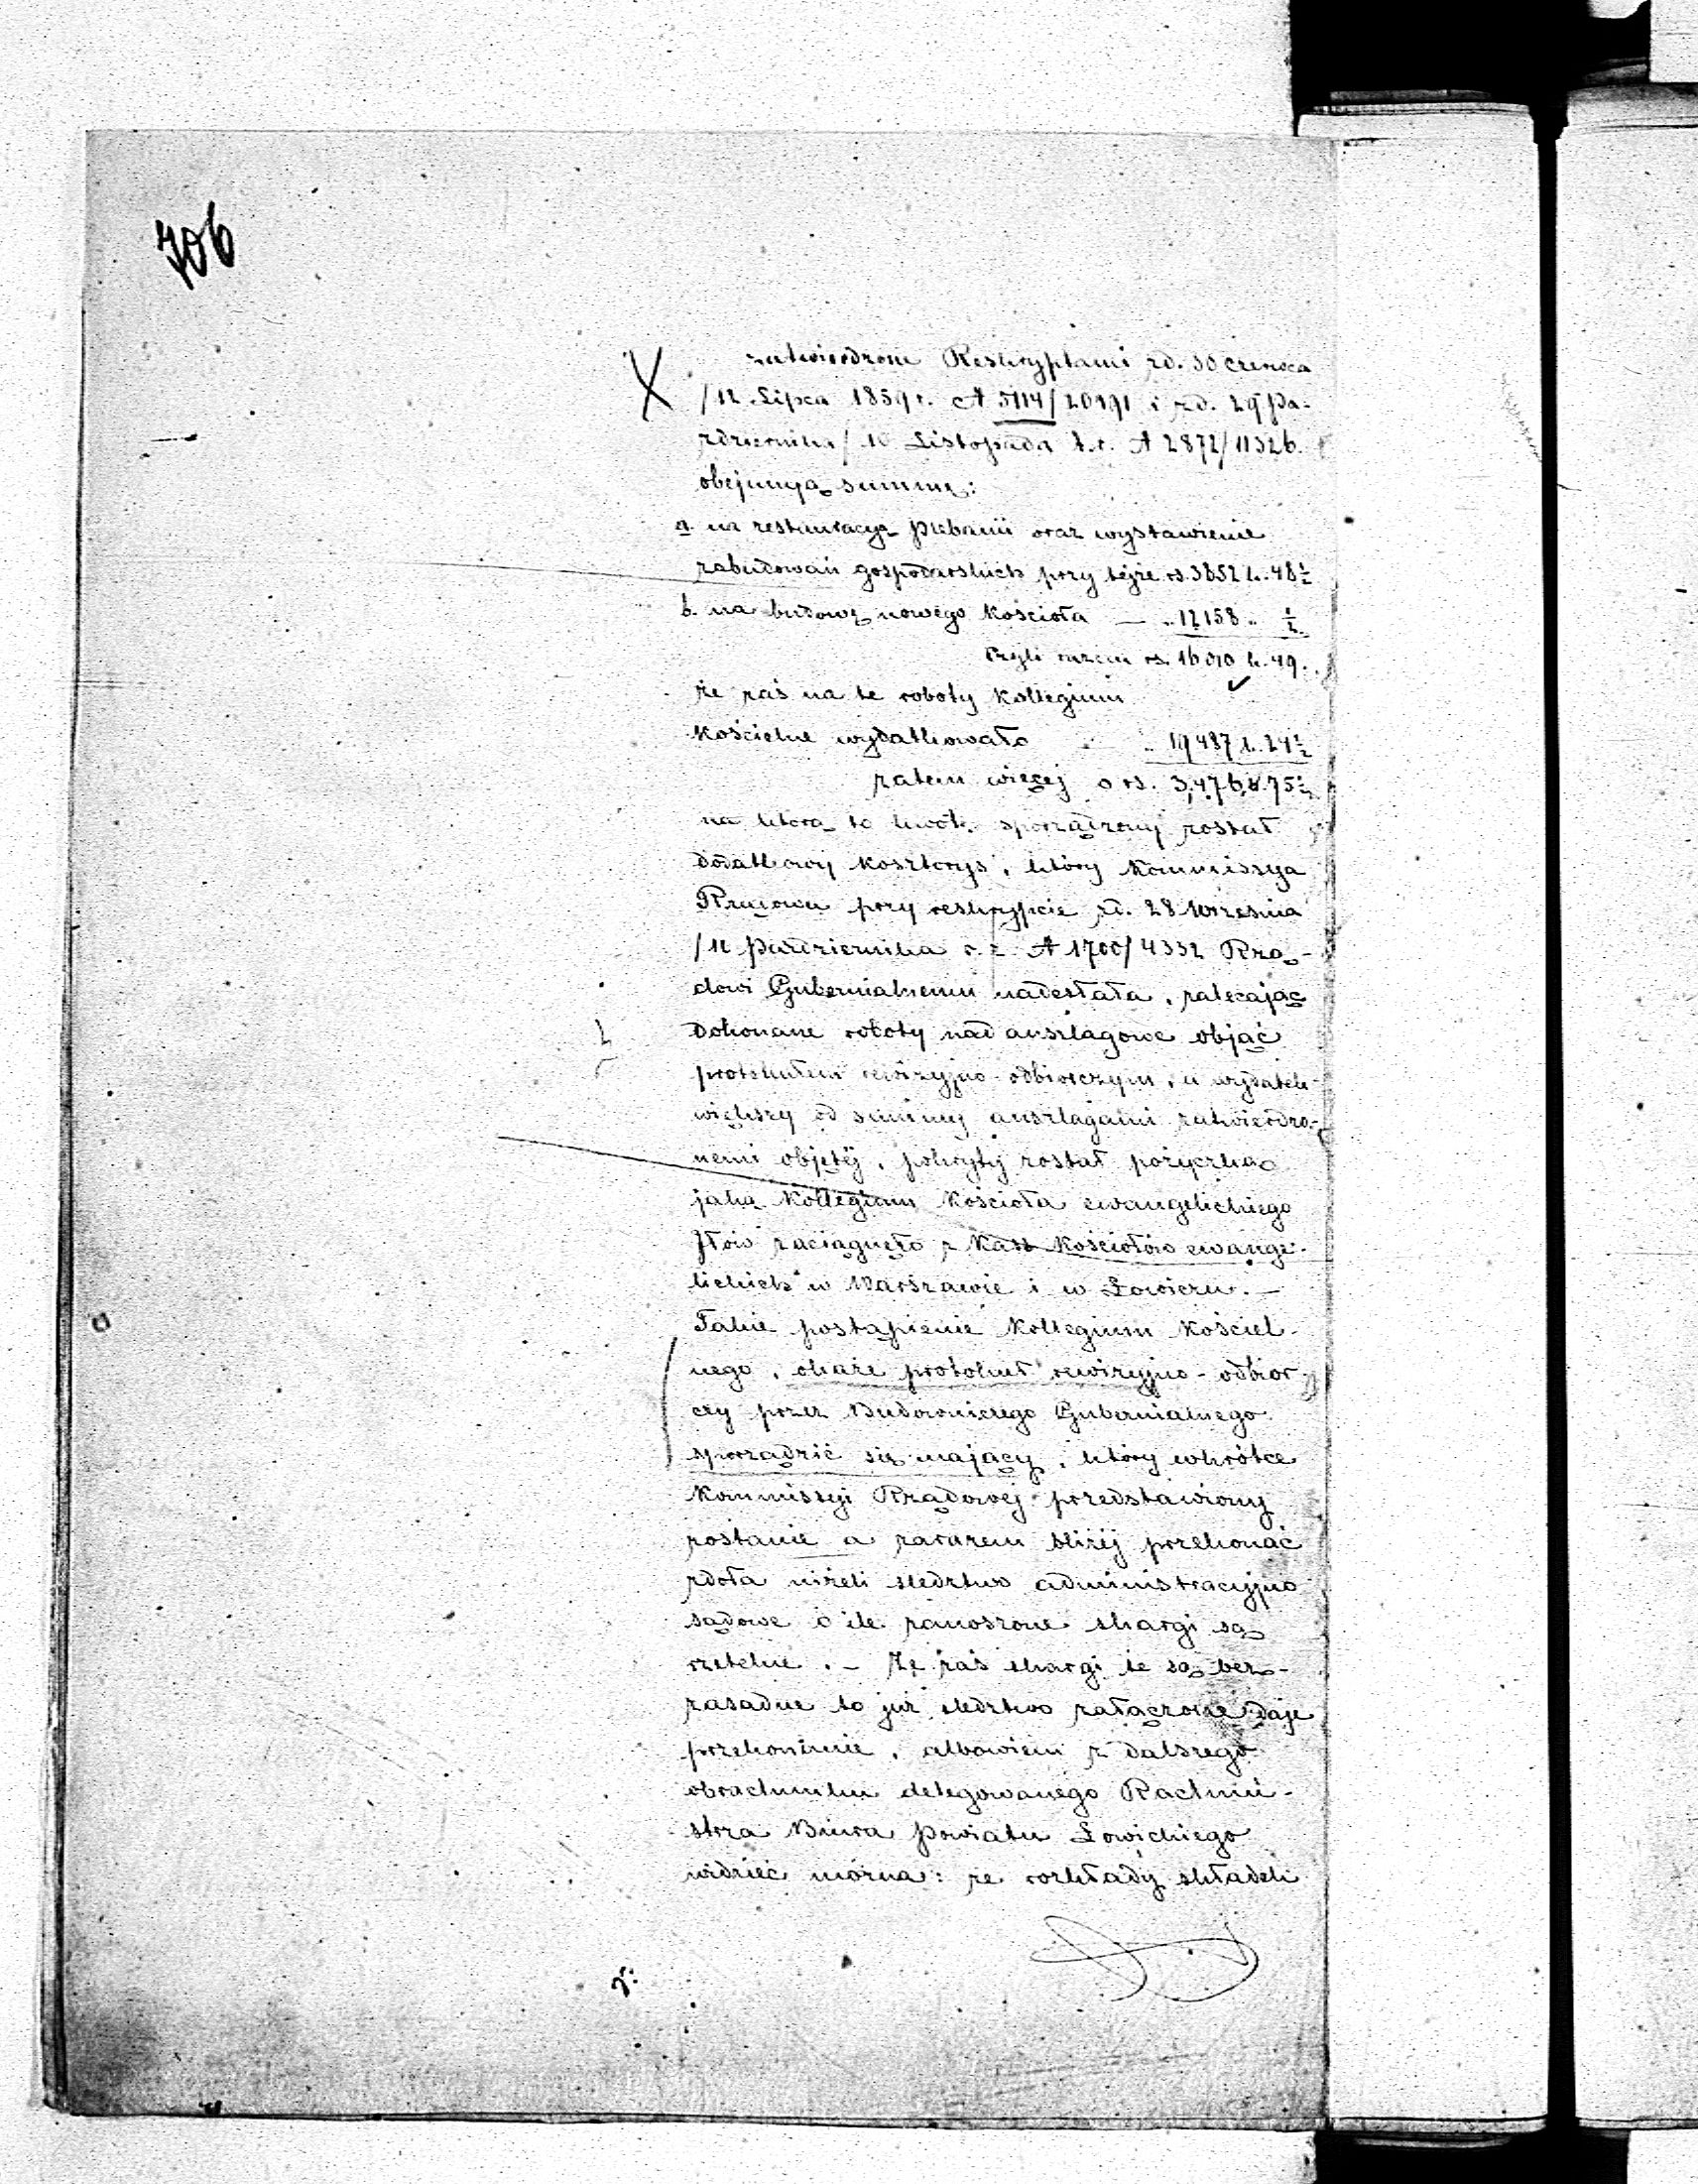 706
zatwierdzone Reskryptami zd. 30 czerwca
/12 Lipca 1859 r. № 5114/20191 i zd. 29 Pa-
ździernika/10 Listopada t.r. № 2872/11326.
obejmują summę:
a. na restauracyą plebanii oraz wystawienie
zabudowań gospodarskich przy tejże rs. 3852 k. 48½
b. na budowę nowego kościoła — „ 12158 „ ½
czyli razem rs. 16010 k. 49.
że zaś na te roboty Kollegium
Kościelne wydatkowało „ 19487 k. 24½
zatem więcej o rs. 3,476 k. 75½
na którą to kwotę sporządzony został
dodatkowy kosztorys, który Kommissya
Rządowa przy reskrypcie zd. 28 Września
/10 Października r. z. № 1700/4332 Rzą-
dowi Gubernialnemu nadesłała, zalecając
dokonane roboty nad anszlagowe objąć
protokułem rewizyjno-odbiorczym, a wydatek
większy od summy anszlagami zatwierdzo-
nemi objętéj, pokryty został pożyczką
jaką Kollegium Kościoła ewangelickiego
Iłów zaciągnęło z Kass Kościołów ewange-
lickich w Warszawie i w Łowiczu. —
Takie postąpienie Kollegium Kościel-
nego, okaże protokuł rewizyjno-odbior-
czy przez Budowniczego Gubernialnego
sporządzić się mający, który wkrótce
Kommissyi Rządowéj przedstawiony
zostanie a zarazem bliżéj przekonać
zdoła niżeli śledztwo administracyjno
sądowe o ile zanoszone skargi są
rzetelne. — Że zaś skargi te są bez-
zasadne to już śledztwo załączone daje
przekonanie, albowiem z dalszego
obrachunku delegowanego Rachmi-
strza Biura Powiatu Łowickiego
widzieć można: że rozkłady składek